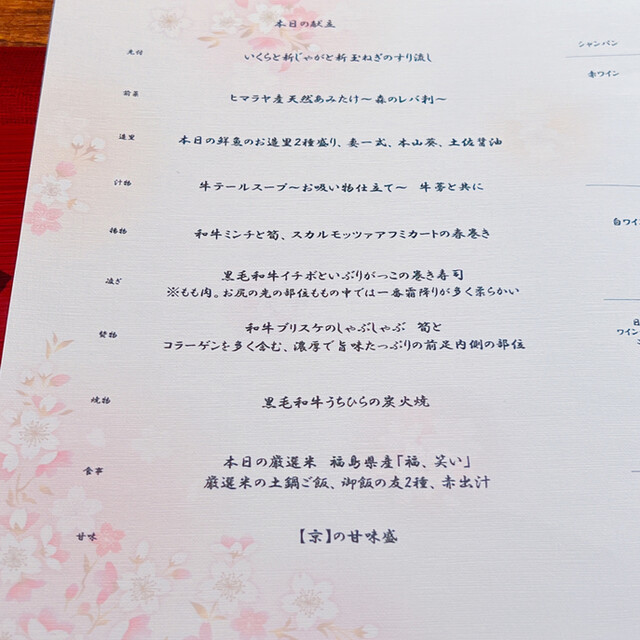 本日の献立
先付
いくらと新じゃがと新玉ねぎのすり流し
前菜
ヒマラヤ産天然あみたけ〜森のレバ刺〜
造里
本日の鮮魚のお造里2種盛り、妻一式、本山葵、土佐醤油
汁物
牛テールスープ〜お吸い物仕立て〜 牛蒡と共に
揚物
和牛ミンチと筍、スカルモッツァアフミカートの春巻き
凌ぎ
黒毛和牛イチボといぶりがっこの巻き寿司
※もも肉。お尻の先の部位ももの中では一番霜降りが多く柔らかい
焚物
和牛ブリスケのしゃぶしゃぶ 筍と
コラーゲンを多く含む、濃厚で旨味たっぷりの前足内側の部位
焼物
黒毛和牛うちひらの炭火焼
食事
本日の厳選米 福島県産「福、笑い」
厳選米の土鍋ご飯、御飯の友2種、赤出汁
甘味
【京】の甘味盛
シャンパン
赤ワイン
白ワイ
日
ワイン